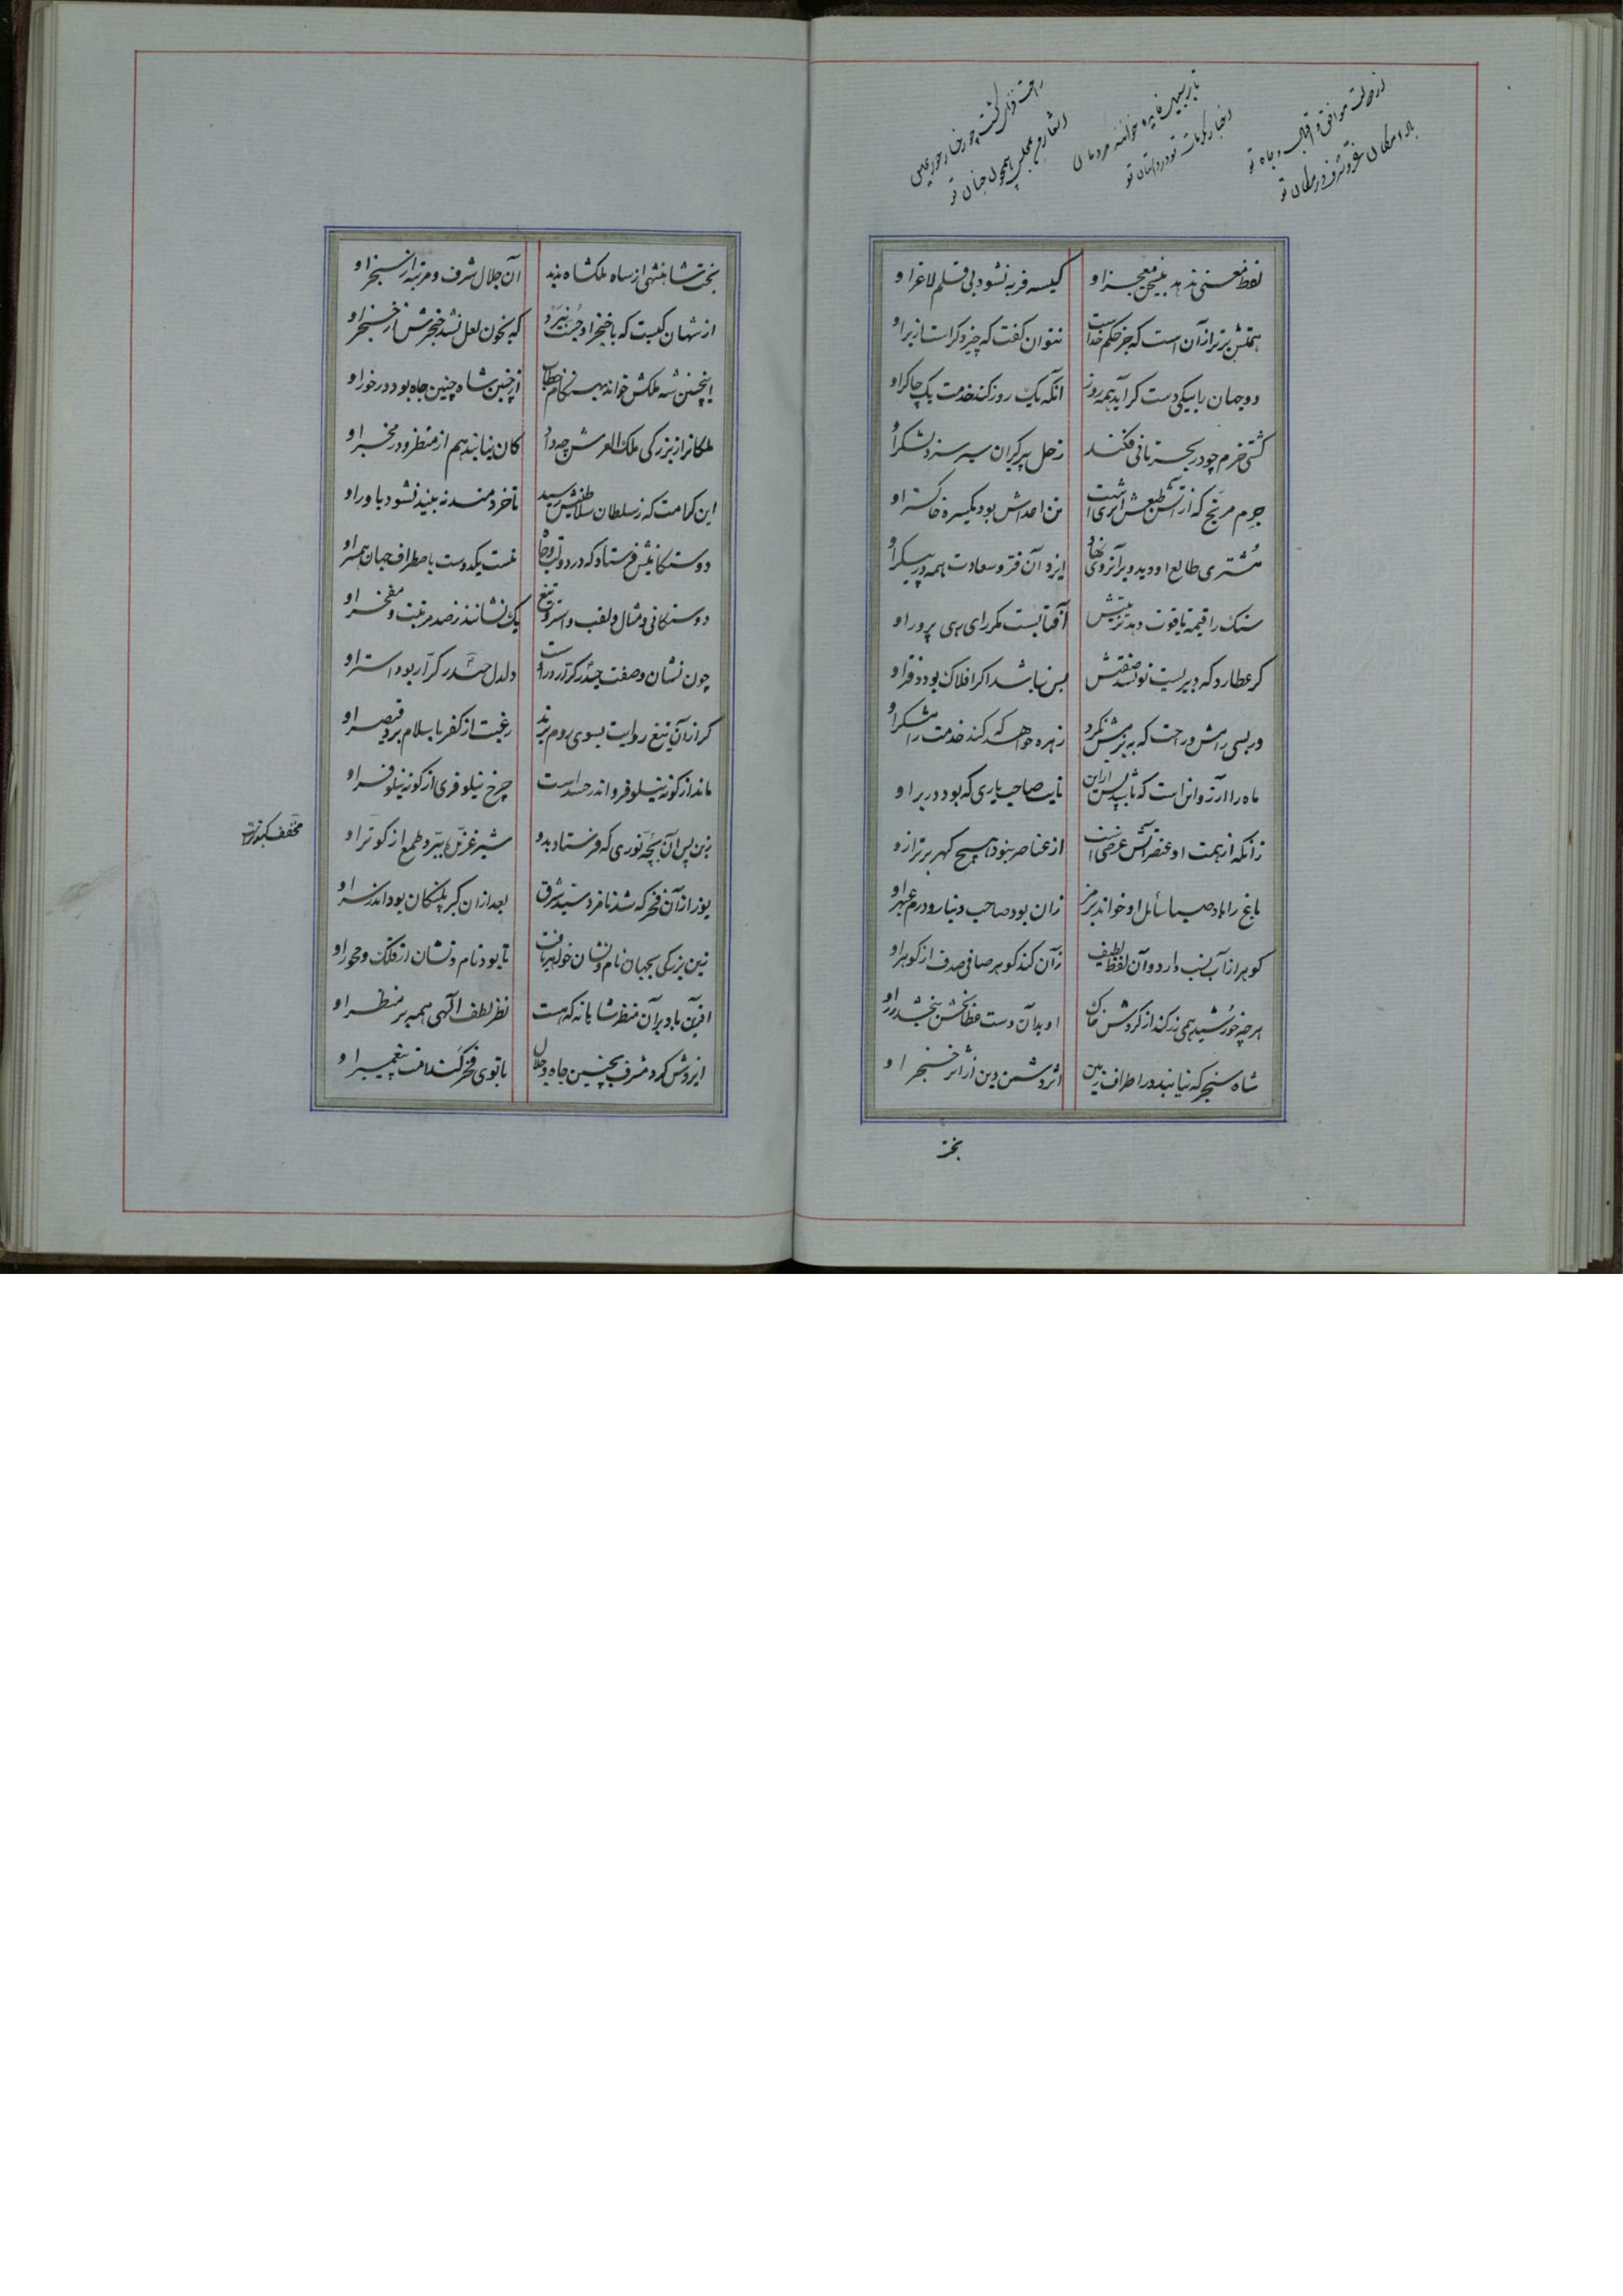 از دولت موافق و اقبال و جاه تو
باد امکان عز و شرف در مکان تو
تا بر سپهر نایره خوانند مردمان
اخبار مکرمات تو در داستان تو
راحت فزای گشت چو رخسار حور عین
مجلس همچون جنان تو
لفظ معنی ندهد بی سخن معجز او
کیسه فربه نشود بی قلم لاغر او
همتش برتر از آن است که جز حکم خداست
نتوان گفت که چیز دگر است از بر او
دو جهان را بیکی دست گر آید همه روز
آنکه یک روز کند خدمت یک چاکر او
کشتی خرم چو در بحر فکند
زحل پیر گران سر سزد لنگر او
جرم مریخ که از آتش طبعش اثری است
تن اعداش بود یکسره خاکستر او
مشتری طالع او دید و بر آنروی نهاد
ایزد آن فر و سعادت همه در پیکر او
سنک را قیمت یاقوت دهد تربیتش
آفتابست مگر رای رهی پرور او
گر عطارد که دبیریست نویسد صفتش
بس نباشد اگر افلاک بود دفتر او
ور بسی رامش و راحت که به بزمش نگرد
زهره خواهد که کند خدمت رامشگر او
ماه را آرزو آنست که تا پیش از این
نایب صاحب یاری که بود در بر او
زانکه از همت او عنصر آتش عرضی است
از عناصر نبود هیچ گهر برتر ازو
باغ را باد صبا سائل او خواند برمز
زان بود صاحب دینار و درم عبهر او
گوهر از آب نسب دارد و آن لفظ لطیف
زآن کند گوهر صافی صدف از گوهر او
هر چه خورشید همی زر کند از گردش خاک
او بدآن دست عطابخش ببخشد زر او
شاه سنجر که نیابند در اطراف زمین
اثر دشمن دین از اثر خنجر او
بخت
بخت شاهنشهی از ساه ملکشاه ندید
آن جلال شرف و مرتبه از سنجر او
از شهان کیست که با خنجر او جست نبرد
که بخون لعل نشد خنجرش از خنجر او
اینچنین شه ملکش خواند بهنگام خطاب
از چنین شاه چنین جاه بود درخور او
ملکانرا ز بزرگی ملک العرش چه داد
کان نیابند هم از منظر و در مخبر او
این کرامت که ز سلطان سلاطینش رسید
تا خردمند نه بیند نشود باور او
دوستکانیش فرستاد که در دولت و جاه
نیست یکدوست باطراف جهان همسر او
دوستکانی و مثال و لقب و استر و تیغ
یک نشانند ز صد مرتبت و مفخر او
چون نشان و صفت حیدر کرار در اوست
دلدل حیدر کرار بود استر او
گر از آن تیغ روایت بسوی روم برند
رغبت از کفر باسلام برد قیصر او
ماند از گونه نیلوفر و اندر حسد است
چرخ نیلوفری از گونه نیلوفر او
زین پس آن بچه نوری که فرستاد بدو
شیر غژمان ببرد طمع از کوتر او
یوز از آن فخر که شد نامزد سید شرق
بعد از آن کبر پلنگان بود اندر سر او
زین بزرگی بجهان نام و نشان خواهد یافت
تا بود نام و نشان از فلک و محور او
آفرین باد بر آن منظر شاهانه که هست
نظر لطف آلهی همه بر منظر او
ایزدش کرد مشرف بچنین جاه و جلال
تا بوی فخر کند امت پیغمبر او
مخفف کبوترست